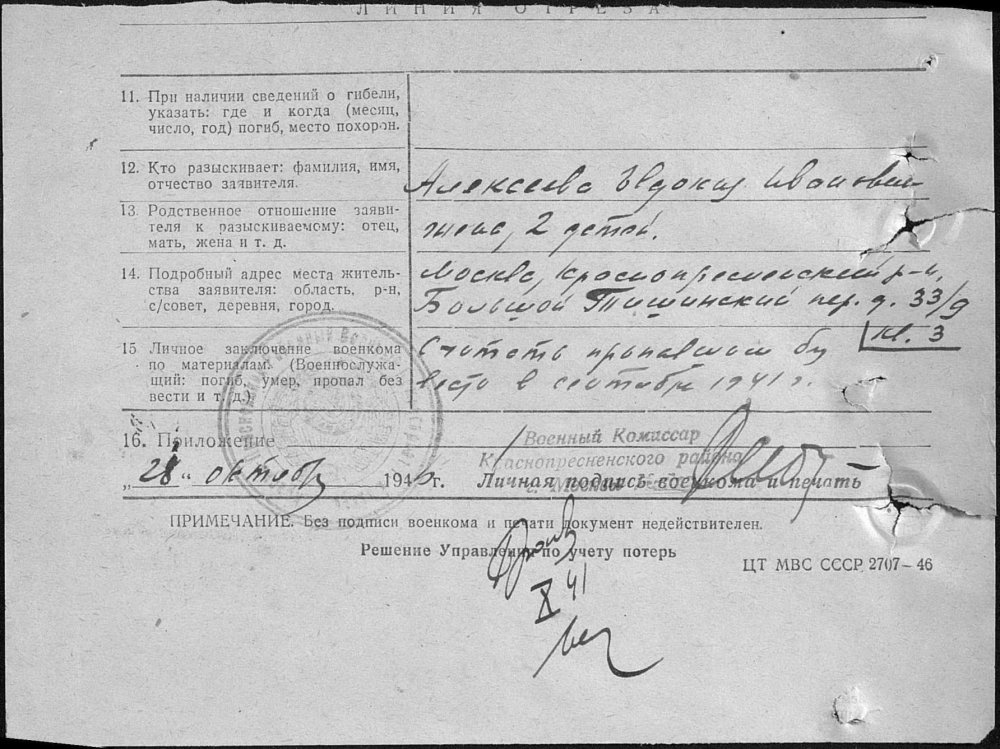 ЛИНИЯ ОТРЕЗА
11. При наличии сведений о гибели,
указать: где и когда (месяц,
число, год) погиб, место похорон.
12. Кто разыскивает: фамилия, имя,
отчество заявителя.
Алексеева Евдокия Ивановн
13. Родственное отношение заяви-
теля к разыскиваемому: отец,
мать, жена и т. д.
жена, 2 детей.
14. Подробный адрес места житель-
ства заявителя: область, р-н,
с/совет, деревня, город.
Москва, Краснопресненский р-н,
Большой Тишинский пер. д. 33/9
кв. 3
15 Личное заключение военкома
по материалам. (Военнослужа-
щий: погиб, умер, пропал без
вести и т. д.)
Считать пропавшим без
вести в сентябре 1941 г.
16. Приложение
Военный Комиссар
Краснопресненского района
г. Москвы
„28" октября 194 г. Личная подпись военкома и печать
ПРИМЕЧАНИЕ. Без подписи военкома и печати документ недействителен.
Решение Управления по учету потерь
ЦТ МВС СССР 2707—46
X 41